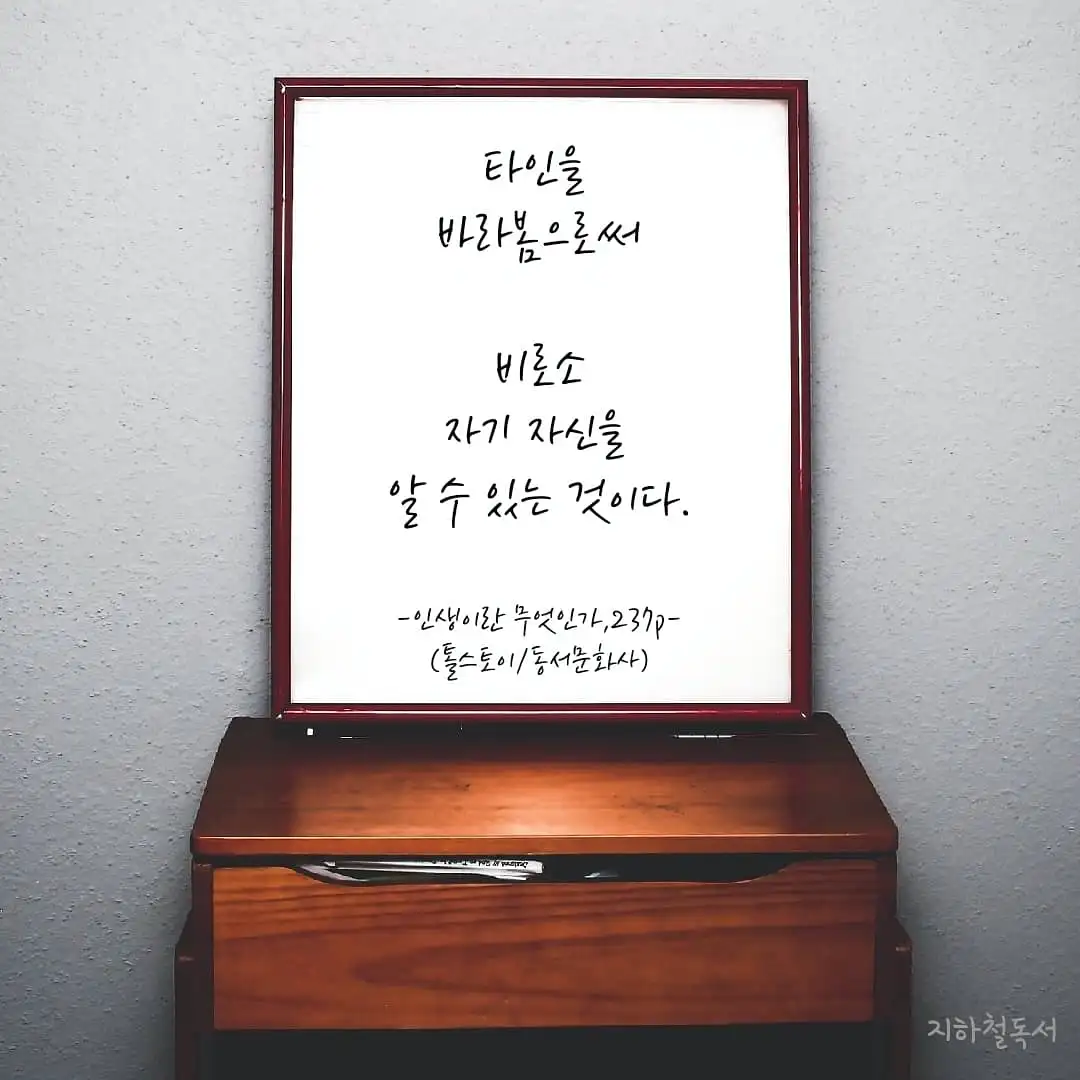 타인을
바라봄으로써
비로소
자기 자신을
알 수 있는 것이다.
-인생이란 무엇인가,237p-
(톨스토이/동서문화사)
지하철독서